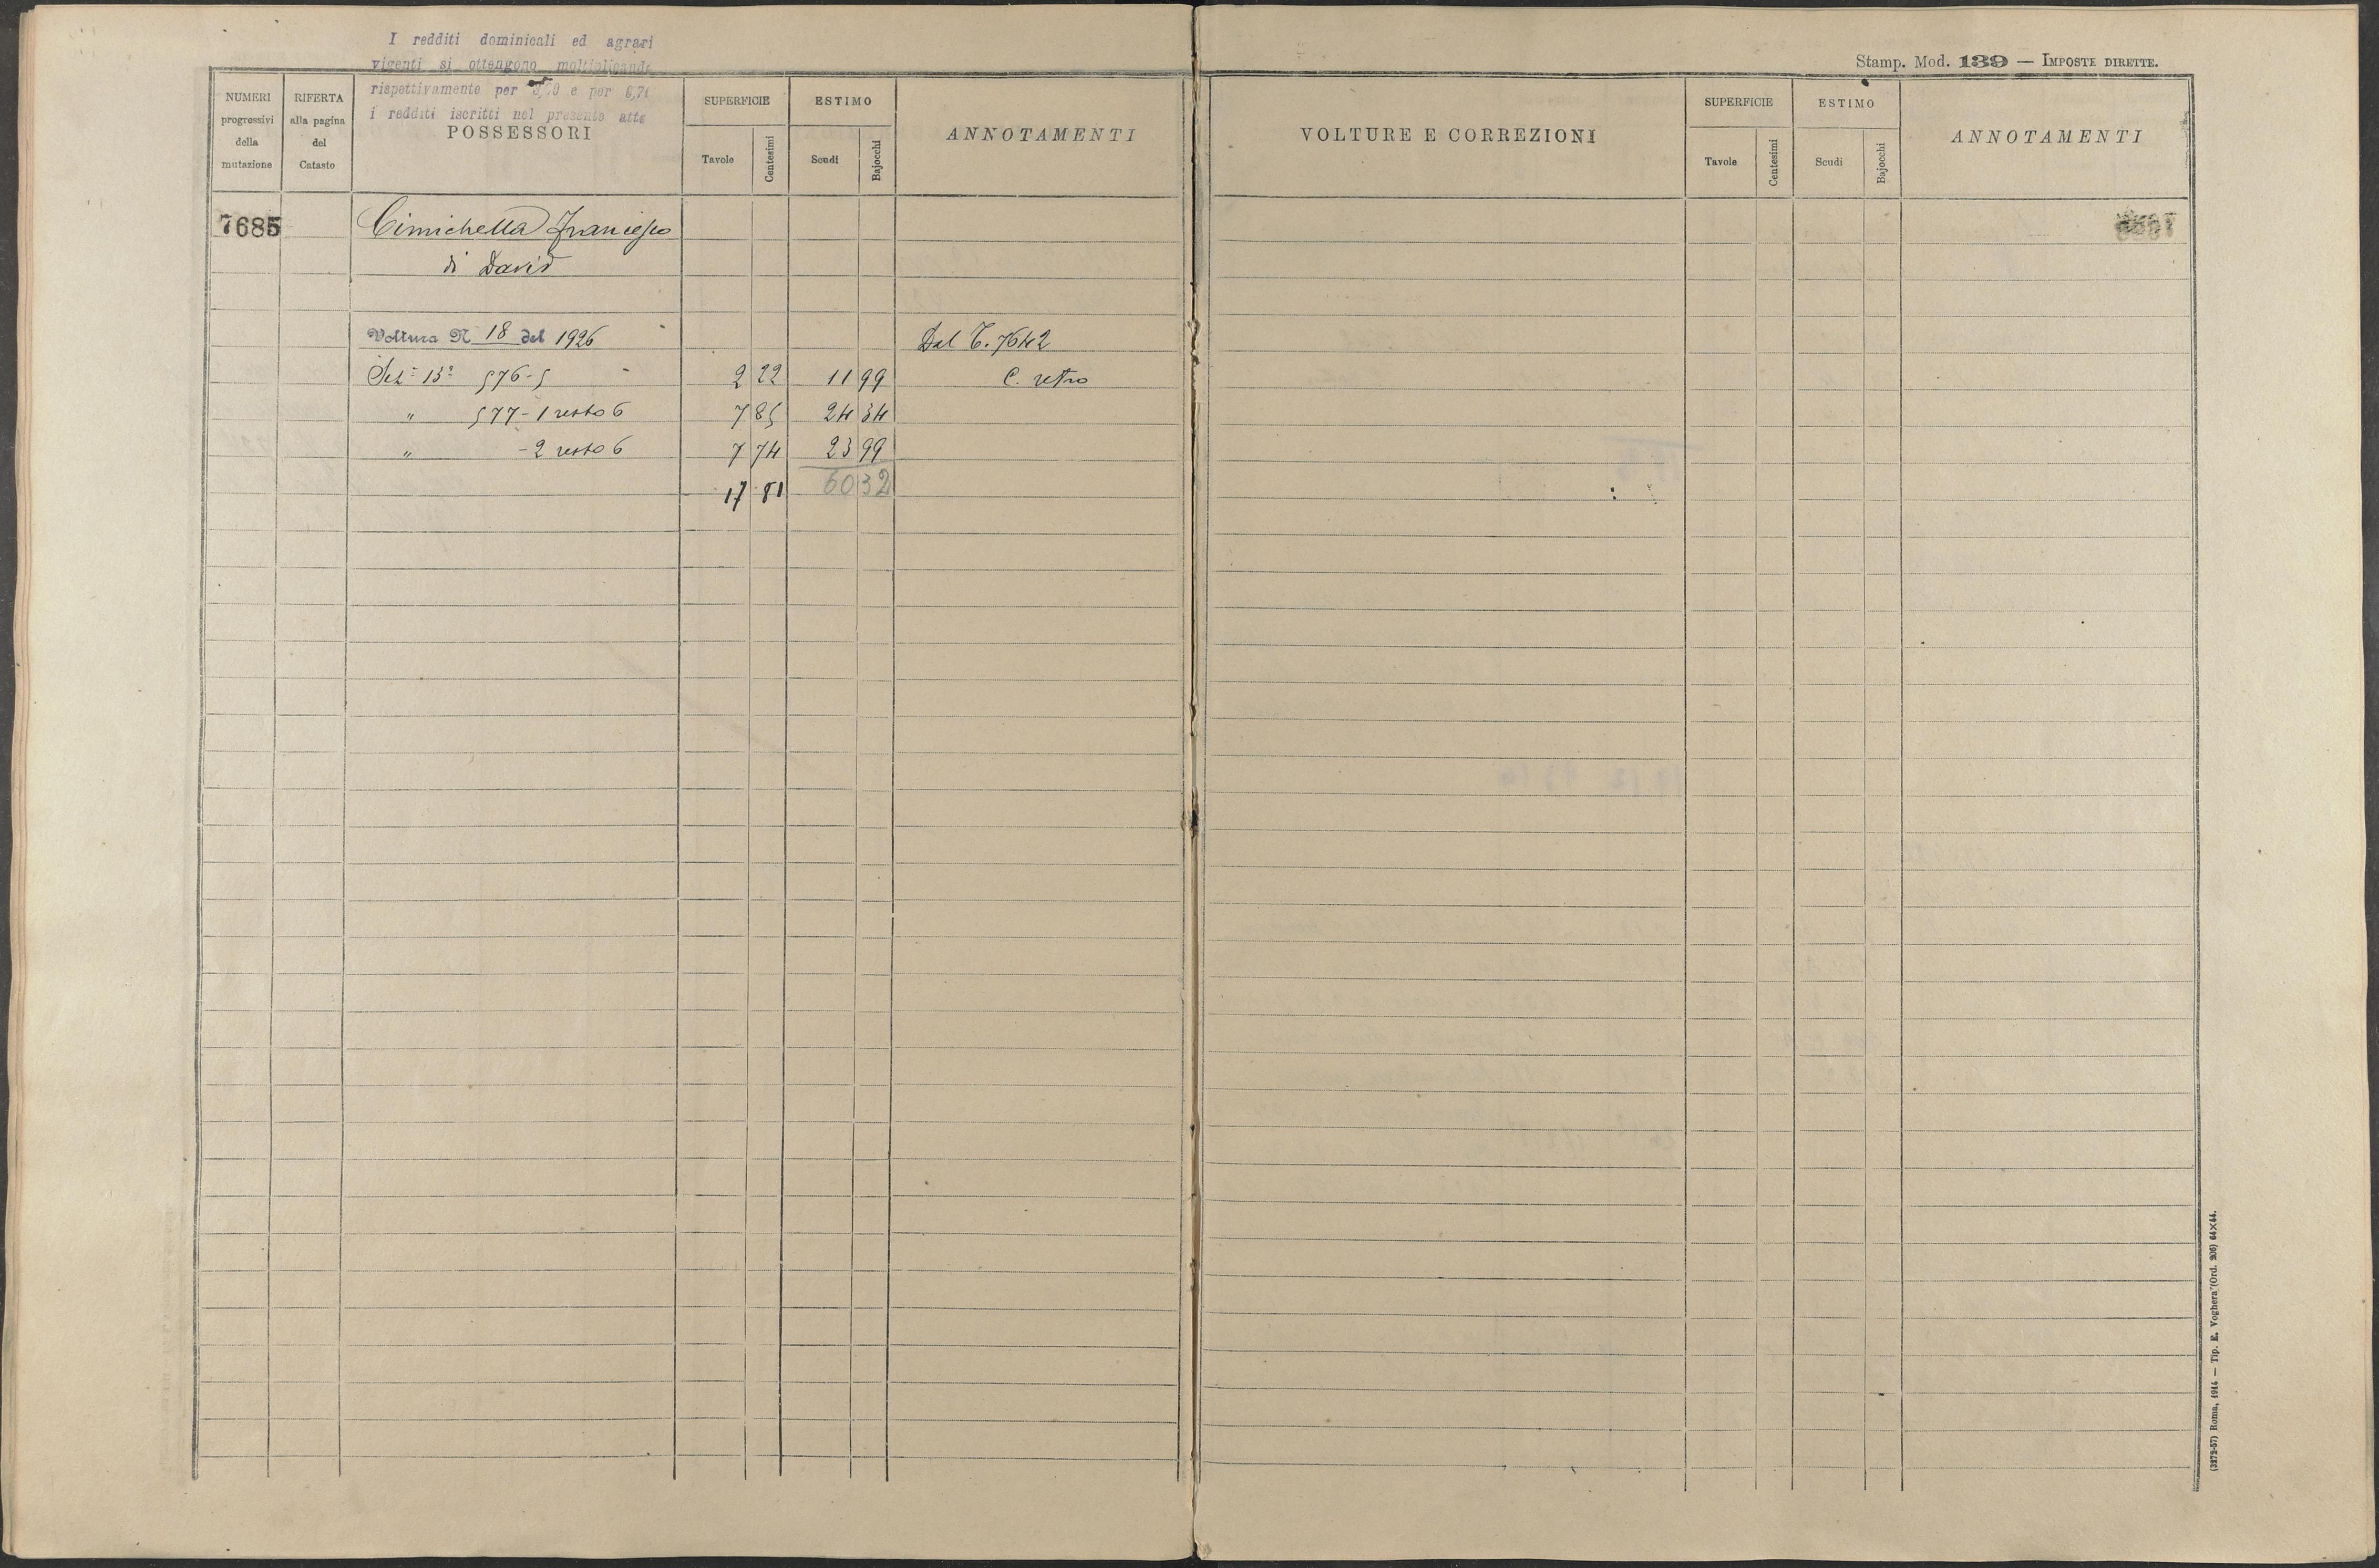 I redditi dominicali ed agrari
vigenti si ottengono moltiplicando
rispettivamente per e per
i redditi iscritti nel presente atto
NUMERI progressivi della mutazione
RIFERTA alla pagina del Catasto
POSSESSORI
SUPERFICIE
Tavole
Centesimi
ESTIMO
Scudi
Bajocchi
ANNOTAMENTI
7685
Cimichella Francesco
di David
Voltura N 18 del 1926
Dal T. 7642
Sez. 13ª 576-5 2 22 11 99 C. retro
" 577-1 resto 6 7 85 24 34
" -2 resto 6 7 74 23 99
17 81 60 32
Stamp. Mod. 139 — IMPOSTE DIRETTE.
VOLTURE E CORREZIONI
SUPERFICIE
Tavole
Centesimi
ESTIMO
Scudi
Bajocchi
ANNOTAMENTI
(3272-57) Roma, 1914 — Tip. E. Voghera (Ord. 206) 64×44.